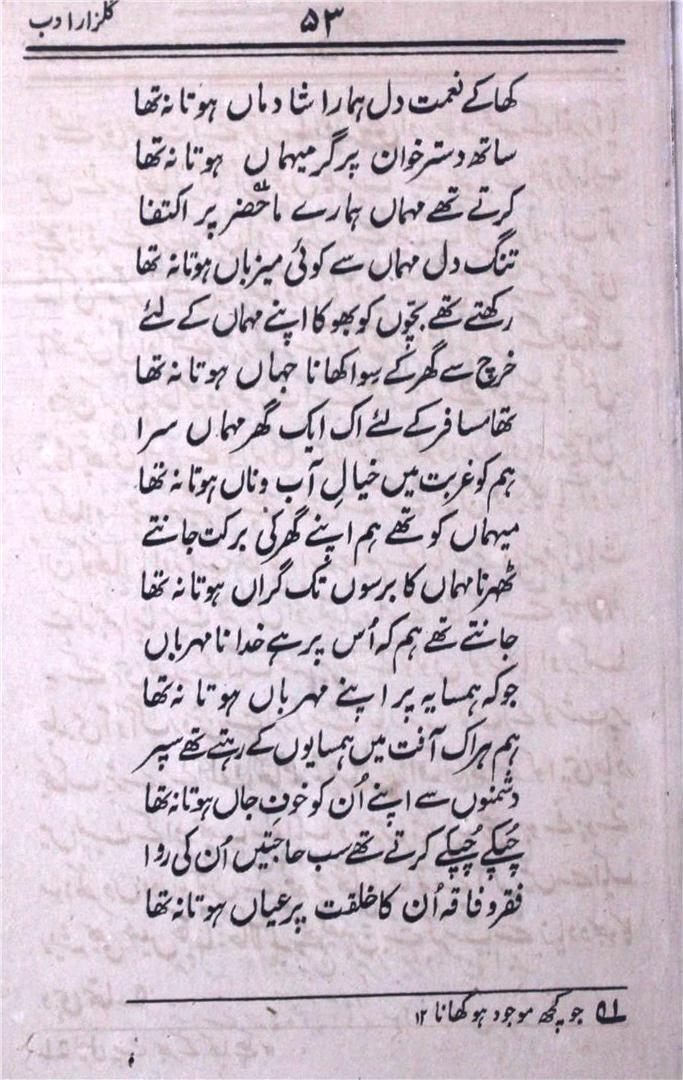 گلزار ادب
۵۳
کھا کے نعمت دل ہمارا شادماں ہوتا نہ تھا
ساتھ دسترخوان پر گر میہماں ہوتا نہ تھا
کرتے تھے مہماں ہمارے ماحضر پر اکتفا
تنگ دل مہماں سے کوئی میزباں ہوتا نہ تھا
رکھتے تھے بچّوں کو بھوکا اپنے مہماں کے لئے
خرچ سے گھر کے سِوا کھانا جہاں ہوتا نہ تھا
تھا مسافر کے لئے اک ایک گھر مہماں سرا
ہم کو غربت میں خیالِ آب و ناں ہوتا نہ تھا
میہماں کو تھے ہم اپنے گھر کی برکت جانتے
ٹھہرنا مہماں کا برسوں تک گراں ہوتا نہ تھا
جانتے تھے ہم کہ اُس پر ہے خدا نا مہرباں
جو کہ ہمسایہ پر اپنے مہرباں ہوتا نہ تھا
ہم ہر اک آفت میں ہمسایوں کے رہتے تھے سپر
دشمنوں سے اپنے اُن کو خوفِ جاں ہوتا نہ تھا
چُپکے چُپکے کرتے تھے سب حاجتیں اُن کی روا
فقر و فاقہ اُن کا خلقت پر عیاں ہوتا نہ تھا
۱ھ جو کچھ موجود ہو کھانا ۱۲